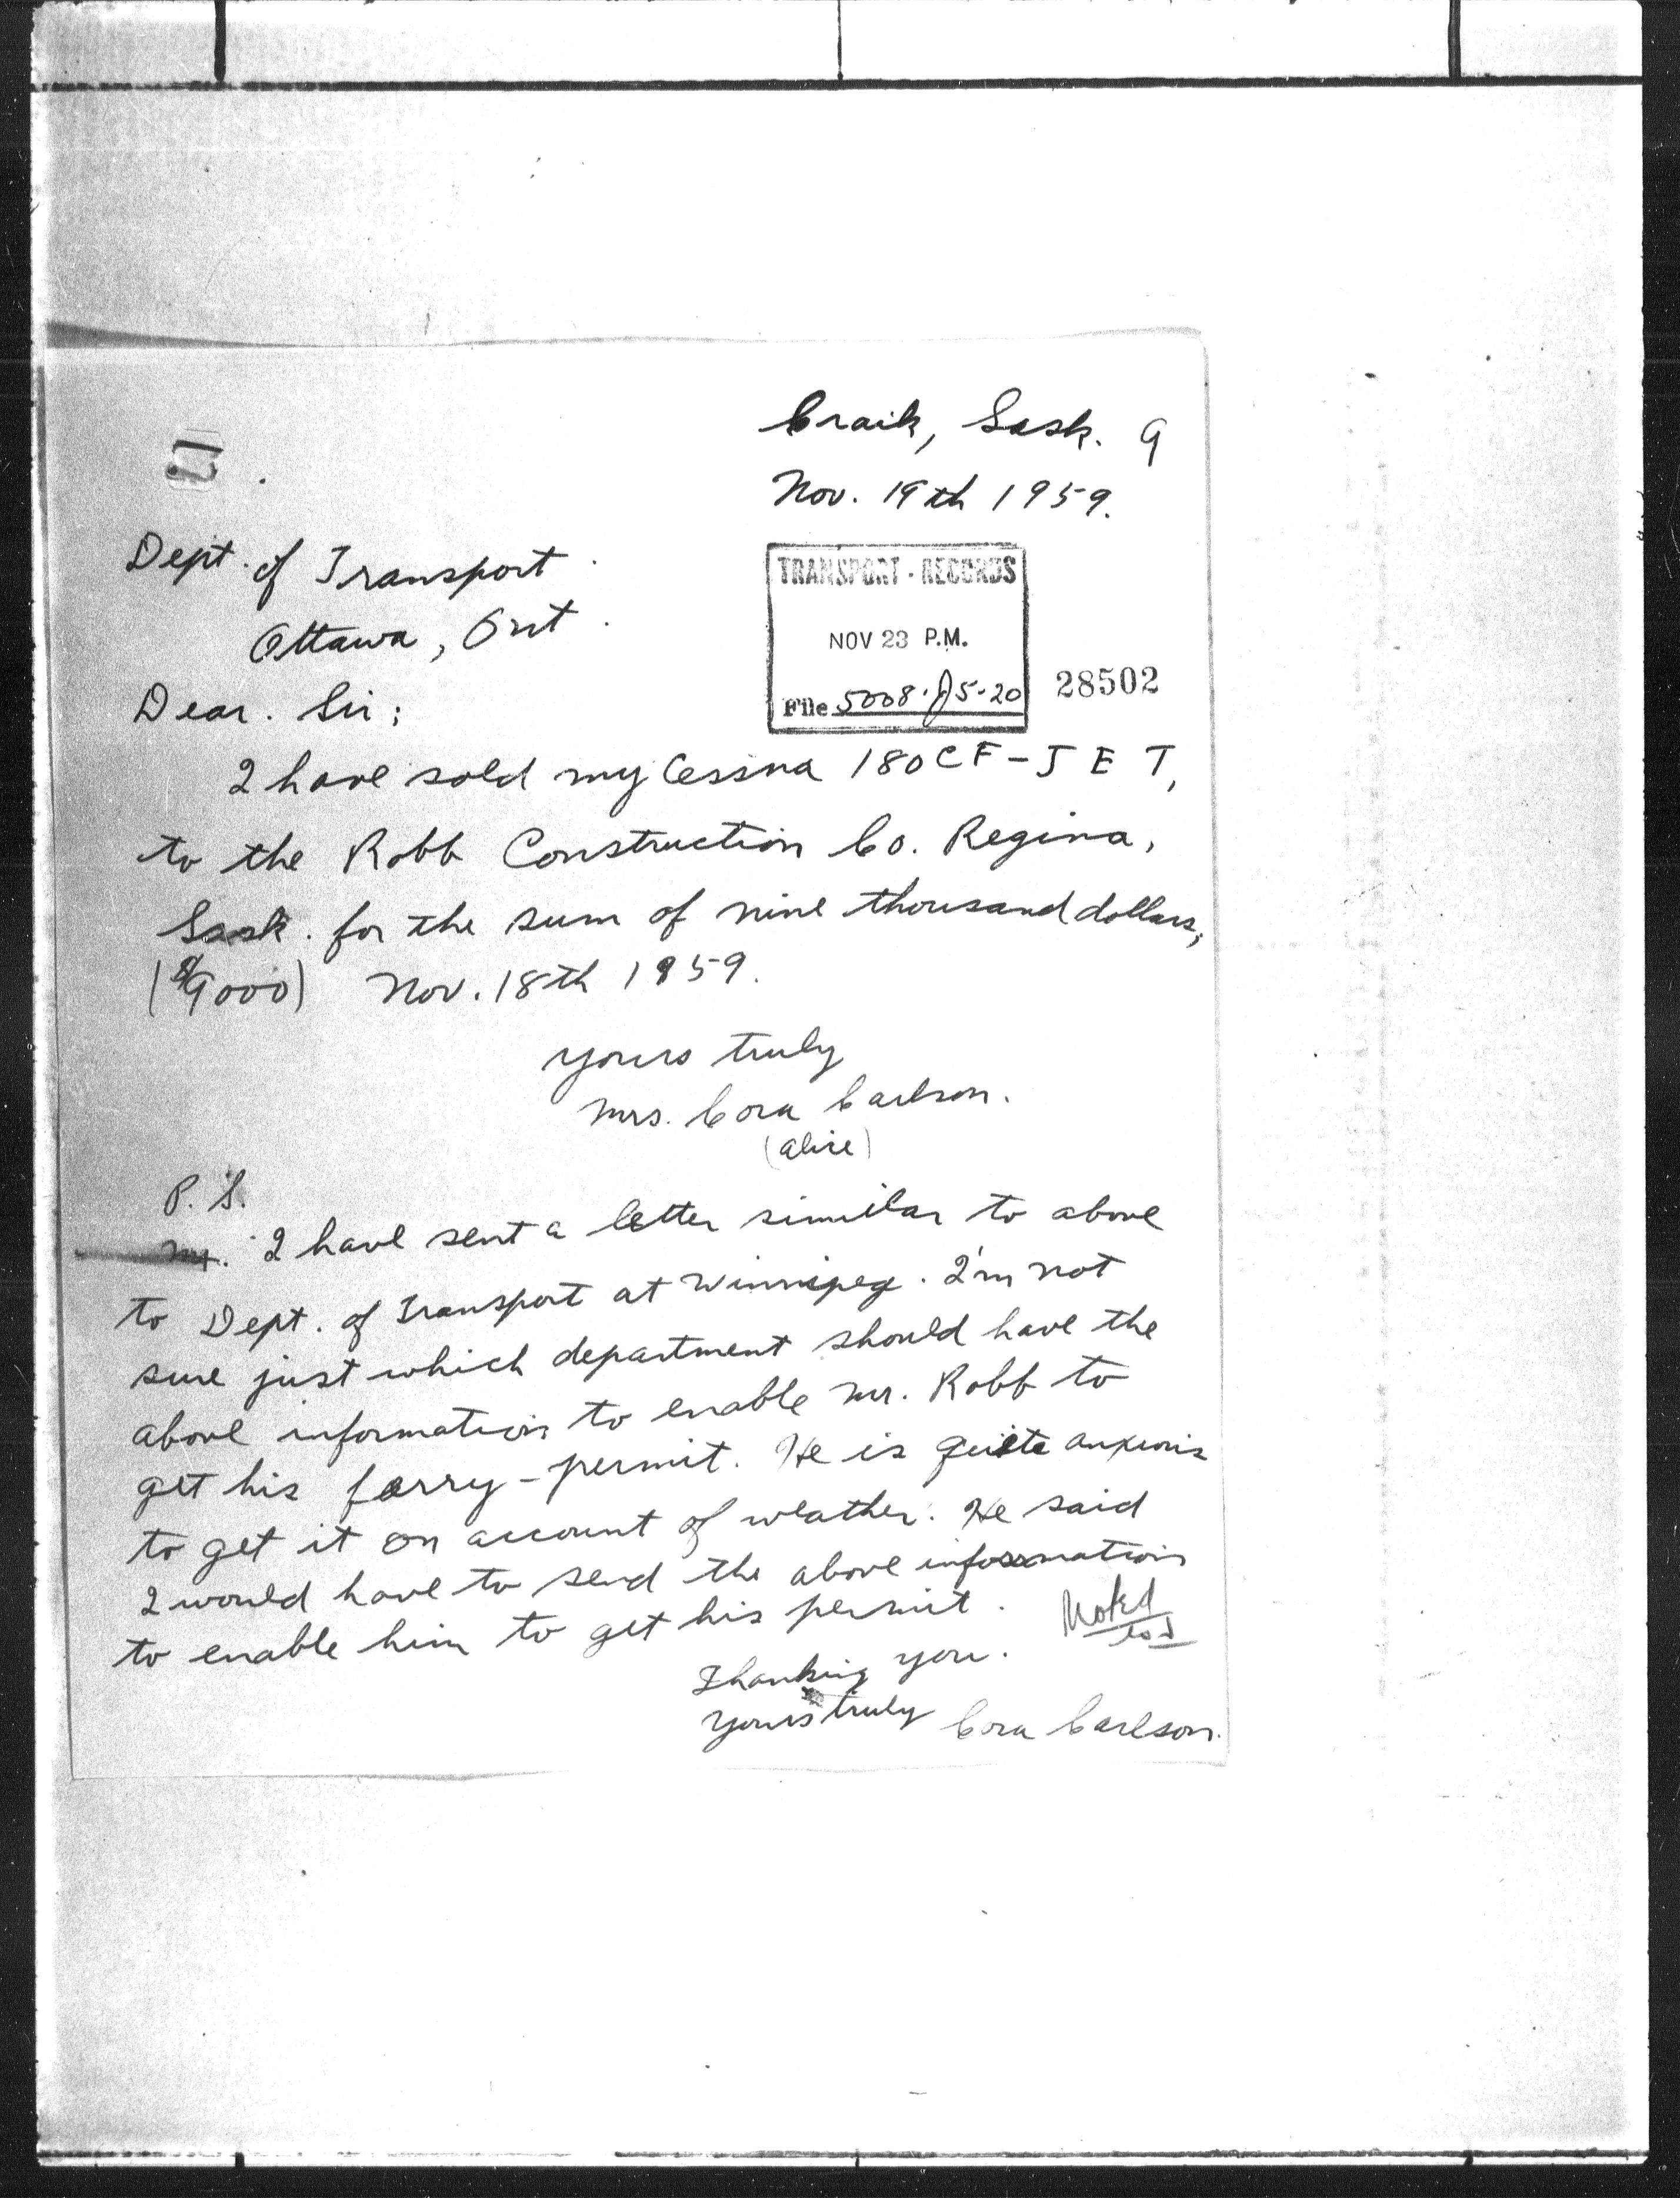 Craik, Sask. 9
Nov. 19th 1959.
Dept. of Transport
Ottawa, Ont.
TRANSPORT - RECORDS
NOV 23 P.M.
File 5008-J5-20
28502
Dear. Sir;
I have sold my Cessna 180 CF-JET,
to the Robb Construction Co. Regina,
Sask. for the sum of nine thousand dollars,
($9000) Nov. 18th 1959.
Yours truly
Mrs. Cora Carlson.
(Alice)
P.S.
I have sent a letter similar to above
to Dept. of Transport at Winnipeg. I'm not
sure just which department should have the
above information to enable Mr. Robb to
get his ferry-permit. He is quite anxious
to get it on account of weather. He said
I would have to send the above information
to enable him to get his permit.
Noted
Thanking you.
Yours truly Cora Carlson.